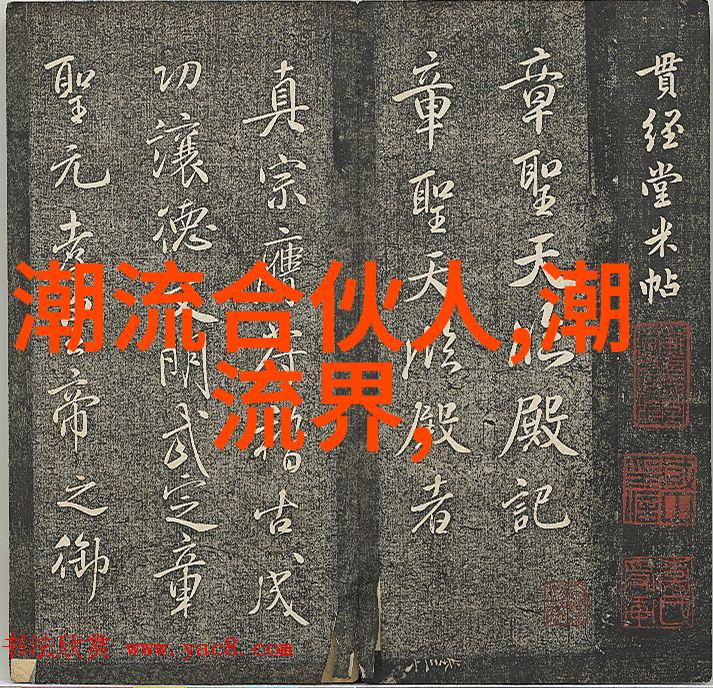 貫經堂米帖
章聖天臨殿記
章聖天臨殿者
真宗膺符稽古成
功讓德文明武定章
聖元孝皇帝之御
潮流合伙人,潮
流界,
书法欣赏 www.yac8.com